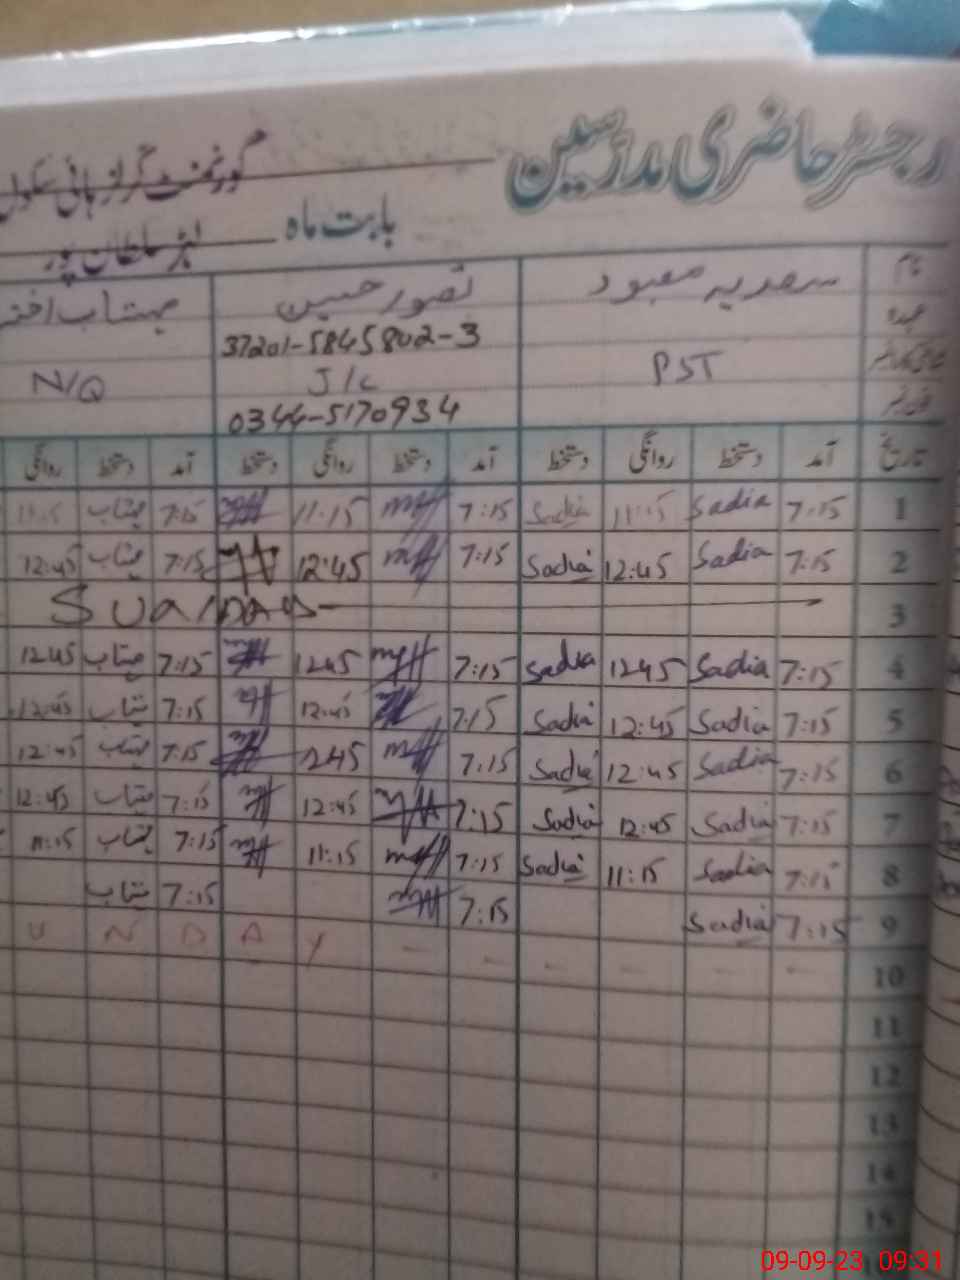 رجسٹر حاضری مدرسین
گورنمنٹ گرلز ہائی سکول
بابت ماہ
لہڑ سلطان پور
نام سعدیہ معبود تصور حسین مہتاب اختر
عہدہ
37201-5845802-3
PST J/C N/Q
0344-5170934
تاریخ آمد دستخط روانگی دستخط آمد دستخط روانگی دستخط آمد دستخط روانگی
1 7:15 Sadia 11:15 Sadia 7:15 11:15 7:15 مہتاب
2 7:15 Sadia 12:45 Sadia 7:15 12:45 7:15 مہتاب 12:45
3 SUNDAY
4 7:15 Sadia 1245 Sadia 7:15 1245 7:15 مہتاب 1245
5 7:15 Sadia 12:45 Sadia 7:15 12:45 7:15 مہتاب 12:45
6 7:15 Sadia 12:45 Sadia 7:15 1245 7:15 مہتاب 12:45
7 7:15 Sadia 12:45 Sadia 7:15 12:45 7:15 مہتاب 12:45
8 7:15 Sadia 11:15 Sadia 7:15 11:15 7:15 مہتاب 11:15
9 7:15 Sadia 7:15 7:15 مہتاب
10 U N D A Y
11
12
13
14
15
09-09-23 09:31